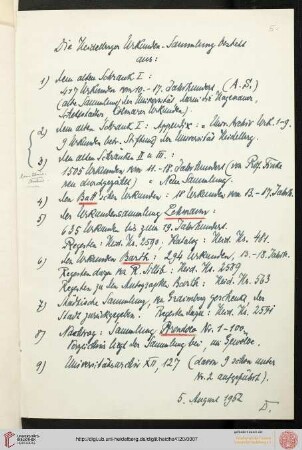 Die Heidelberger Urkunden-Sammlung besteht
aus:
1) dem alten Schrank I:
417 Urkunden vom 10.-17. Jahrhundert (A.S.)
(alte Sammlung der Universität
Urkunden).
2) dem alten Schrank I: Appendix: = Univ. Archiv Nr. 1-9.
9 Urkunden betr. Stiftung der Universität Heidelberg.
3) dem alten Schranke II u. III:
1505 Urkunden vom 11.-18. Jahrhundert (von Prof.
neu durchgezählt) = Neue Sammlung.
4) den Batt'schen Urkunden: 18 Urkunden vom 13.-17. Jahrh.
5) der Urkundensammlung Lehmann:
635 Urkunden bis zum 19. Jahrhundert.
Regesten: Heid. Hs. 2590, Katalog: Heid. Hs. 481.
6) den Urkunden Barth: 294 Urkunden, 13.-18. Jahrh.
Regesten dazu von R. Sillib: Heid. Hs. 2589
Regesten zu den Autographa Barth: Heid. Hs. 563
7) Städtische Sammlung, von geschenkt, der
Stadt zurückgegeben. Regesten dazu: Heid. Hs. 2571
8) Nachtrag: Sammlung Nr. 1-100.
Verzeichnis liegt der Sammlung bei,
9) Universitätsarchiv XII, 127 (davon 9 schon unter
Nr. 2 aufgeführt).
5. August 1952
http://digi.ub.uni-heidelberg.de/diglit/heidhs4120/0307